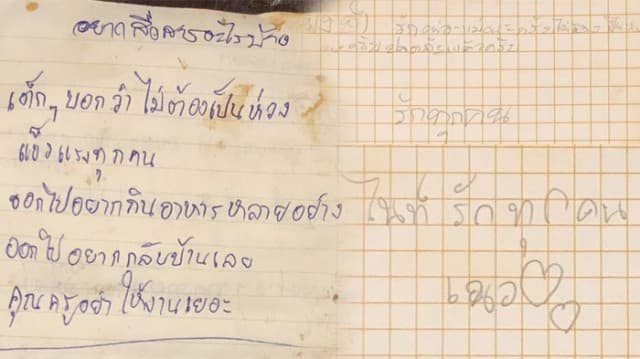 อยากสื่อสารอะไรบ้าง
เด็กๆ บอกว่า ไม่ต้องเป็นห่วง
แข็งแรงทุกคน
ออกไปอยากกินอาหารหลายอย่าง
ออกไปอยากกลับบ้านเลย
คุณครูอย่าให้งานเยอะ
รักทุกคน
ไนท์ รักทุกคน